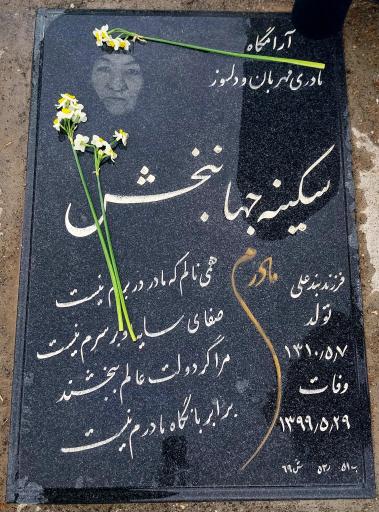 آرامگاه
مادری مهربان و دلسوز
سکینه جهانبخش
فرزند بندعلی
تولد
۱۳۱۰٫۵٫۷
وفات
۱۳۹۹٫۵٫۲۹
مادرم
همی نالم که مادر در برم نیست
صفای سایه او بر سرم نیست
مرا گر دولت عالم ببخشند
برابر با نگاه مادرم نیست
ب ۵۱ ر ۵۳ ش ۶۹